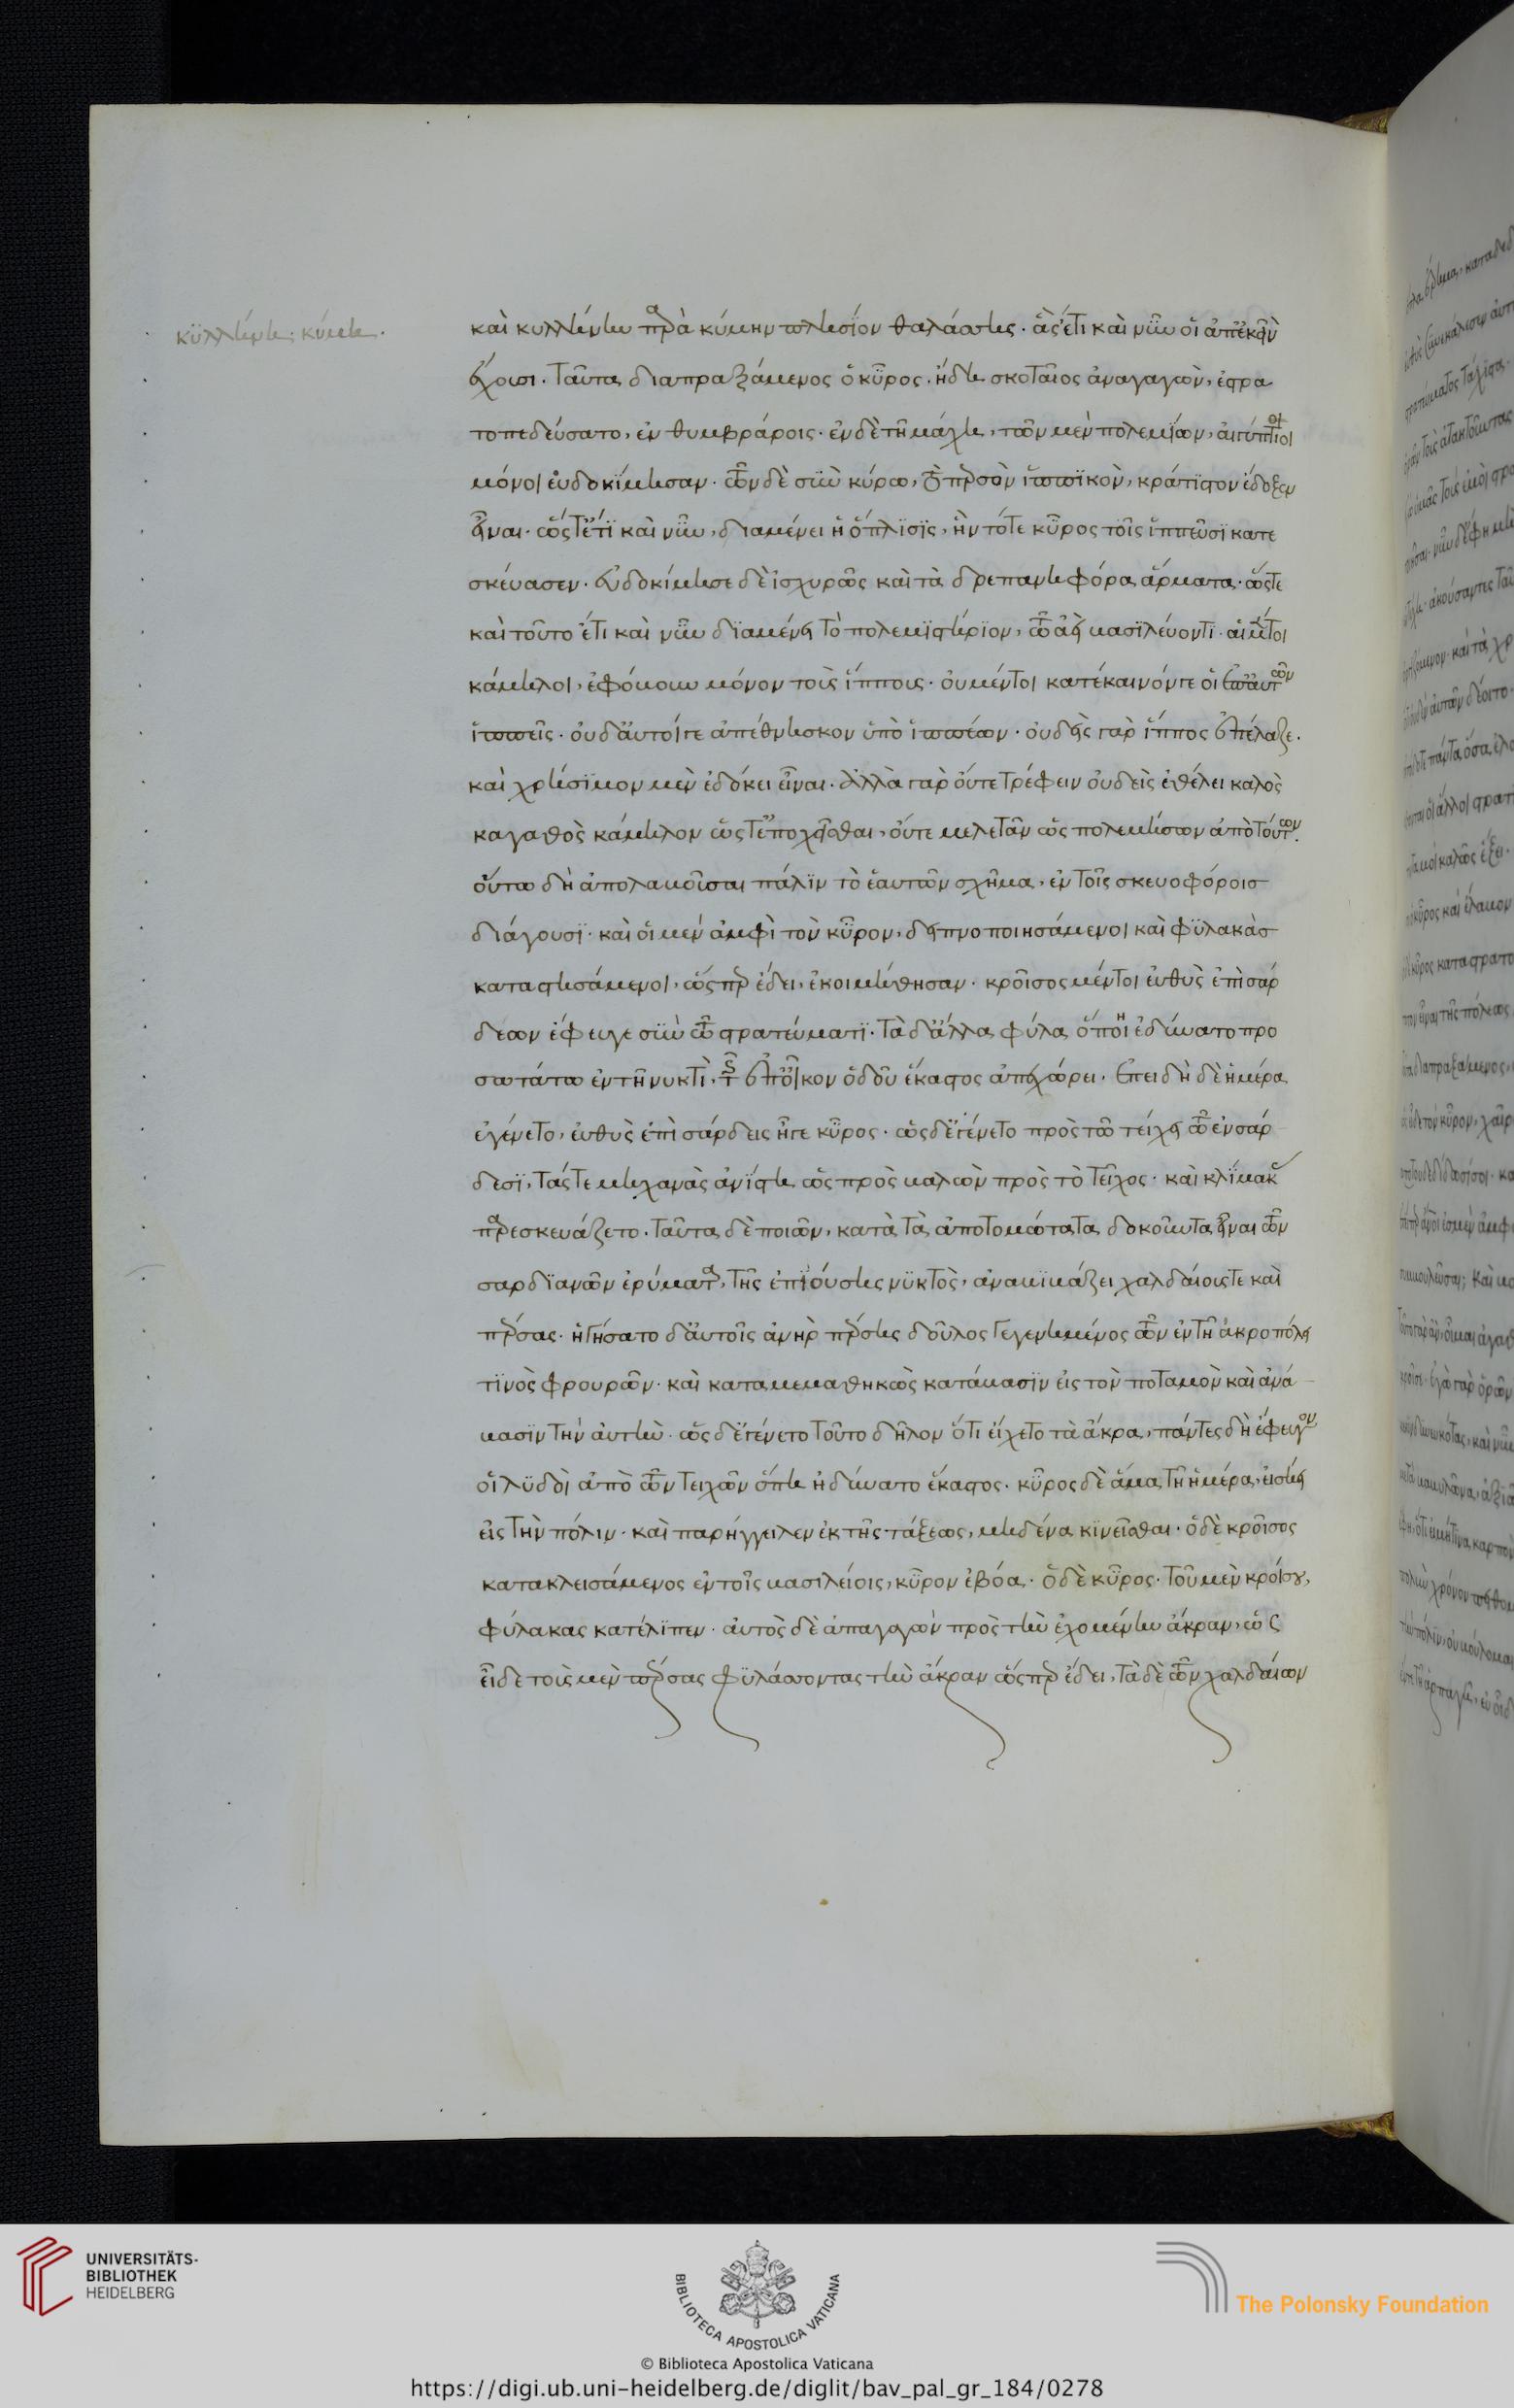 κϋλλήνη· κύμη.
καὶ κυλλήνην παρὰ κύμην πλησΐον θαλάσσης. ἃς ἔτι καὶ νῦν οἱ ἀπ' ἐκείνων
ἔχουσι. ταῦτα διαπραξάμενος ὁ κῦρος. ἤδη σκοταῖος ἀναγαγὼν, ἐστρα
τοπεδεύσατο, ἐν θυμβράροις. ἐν δὲ τῇ μάχῃ, τῶν μὲν πολεμίων, αἰγύπτιοι
μόνοι εὐδοκΐμησαν. τῶν δὲ σὺν κύρῳ, τὸ περσῶν ἱππϊκὸν, κράτιστον ἔδοξεν
εἶναι. ὥς τ' ἔτϊ καὶ νῦν, διαμένει ἡ ὅπλϊσϊς, ἣν τότε κῦρος τοῖς ἱππεῦσϊ κατε
σκεύασεν. εὐδοκίμησε δὲ ἰσχυρῶς καὶ τὰ δρεπανηφόρα ἅρματα. ὥς τε
καὶ τοῦτο ἔτι καὶ νῦν δϊαμένει τὸ πολεμϊστήρϊον, τῷ ἀεὶ βασϊλεύοντϊ. αἱ μέντοι
κάμηλοι, ἐφόβουν μόνον τοὺς ἵππους. οὐ μέντοι κατέκαινόν γε οἱ ἐπ' αὐτῶν
ἱππεῖς. οὐδ' αὐτοί γε ἀπέθνησκον ὑπὸ ἱππέων. οὐδεὶς γὰρ ἵππος ἐπέλαζε.
καὶ χρήσϊμον μὲν ἐδόκει εἶναι. ἀλλὰ γὰρ οὔτε τρέφειν οὐδεὶς ἐθέλει καλὸς
καγαθὸς κάμηλον ὥς τ' ἐποχεῖσθαι, οὔτε μελετᾶν ὡς πολεμήσων ἀπὸ τούτων.
οὕτω δὴ ἀπολαβοῦσαι πάλϊν τὸ ἑαυτῶν σχῆμα, ἐν τοῖς σκευοφόροισ
διάγουσϊ. καὶ οἱ μὲν ἀμφὶ τὸν κῦρον, δειπνοποιησάμενοι καὶ φϋλακὰσ
καταστησάμενοι, ὥς περ ἔδει, ἐκοιμήθησαν. κροῖσος μέντοι εὐθὺς ἐπὶ σάρ
δεων ἔφευγε σὺν τῷ στρατεύματϊ. τὰ δ' ἄλλα φύλα ὅποι ἐδύνατο προ
σωτάτω ἐν τῇ νυκτὶ, τῆς ἐπ' οἶκον ὁδοῦ ἕκαστος ἀπεχώρει. ἐπειδὴ δὲ ἡμέρα
ἐγένετο, εὐθὺς ἐπὶ σάρδεις ἦγε κῦρος. ὡς δ' ἐγένετο πρὸς τῷ τείχει τῷ ἐν σάρ
δεσϊ, τάς τε μηχανὰς ἀνΐστη ὡς προσβαλῶν πρὸς τὸ τεῖχος. καὶ κλΐμακας
παρεσκευάζετο. ταῦτα δὲ ποιῶν, κατὰ τὰ ἀποτομώτατα δοκοῦντα εἶναι τῶν
σαρδϊανῶν ἐρύματα, τῆς ἐπϊούσης νϋκτὸς, ἀναβϊβάζει χαλδαίους τε καὶ
πέρσας. ἡγήσατο δ' αὐτοῖς ἀνὴρ πέρσης δοῦλος γεγενημένος τῶν ἐν τῇ ἀκροπόλει
τϊνὸς φρουρῶν. καὶ καταμεμαθηκὼς κατάβασϊν εἰς τὸν ποταμὸν καὶ ἀνά
βασϊν τὴν αὐτὴν. ὡς δ' ἐγένετο τοῦτο δῆλον ὅτι εἴχετο τὰ ἄκρα, πάντες δὴ ἔφευγον
οἱ λϋδοὶ ἀπὸ τῶν τειχῶν ὅπη ἠδύνατο ἕκαστος. κῦρος δὲ ἅμα τῇ ἡμέρᾳ, εἰσῄει
εἰς τὴν πόλιν. καὶ παρήγγειλεν ἐκ τῆς τάξεως, μηδένα κϊνεῖσθαι. ὁ δὲ κροῖσος
κατακλεισάμενος ἐν τοῖς βασιλείοις, κῦρον ἐβόα. ὁ δὲ κῦρος. τοῦ μὲν κροίσου,
φύλακας κατέλϊπεν. αὐτὸς δὲ ἀπαγαγὼν πρὸς τὴν ἐχομένην ἄκραν, ὡς
εἶδε τοὺς μὲν πέρσας φϋλάσσοντας τὴν ἄκραν ὥς περ ἔδει, τὰ δὲ τῶν χαλδαίων
UNIVERSITÄTS-
BIBLIOTHEK
HEIDELBERG
BIBLIOTECA APOSTOLICA VATICANA
The Polonsky Foundation
© Biblioteca Apostolica Vaticana
https://digi.ub.uni-heidelberg.de/diglit/bav_pal_gr_184/0278